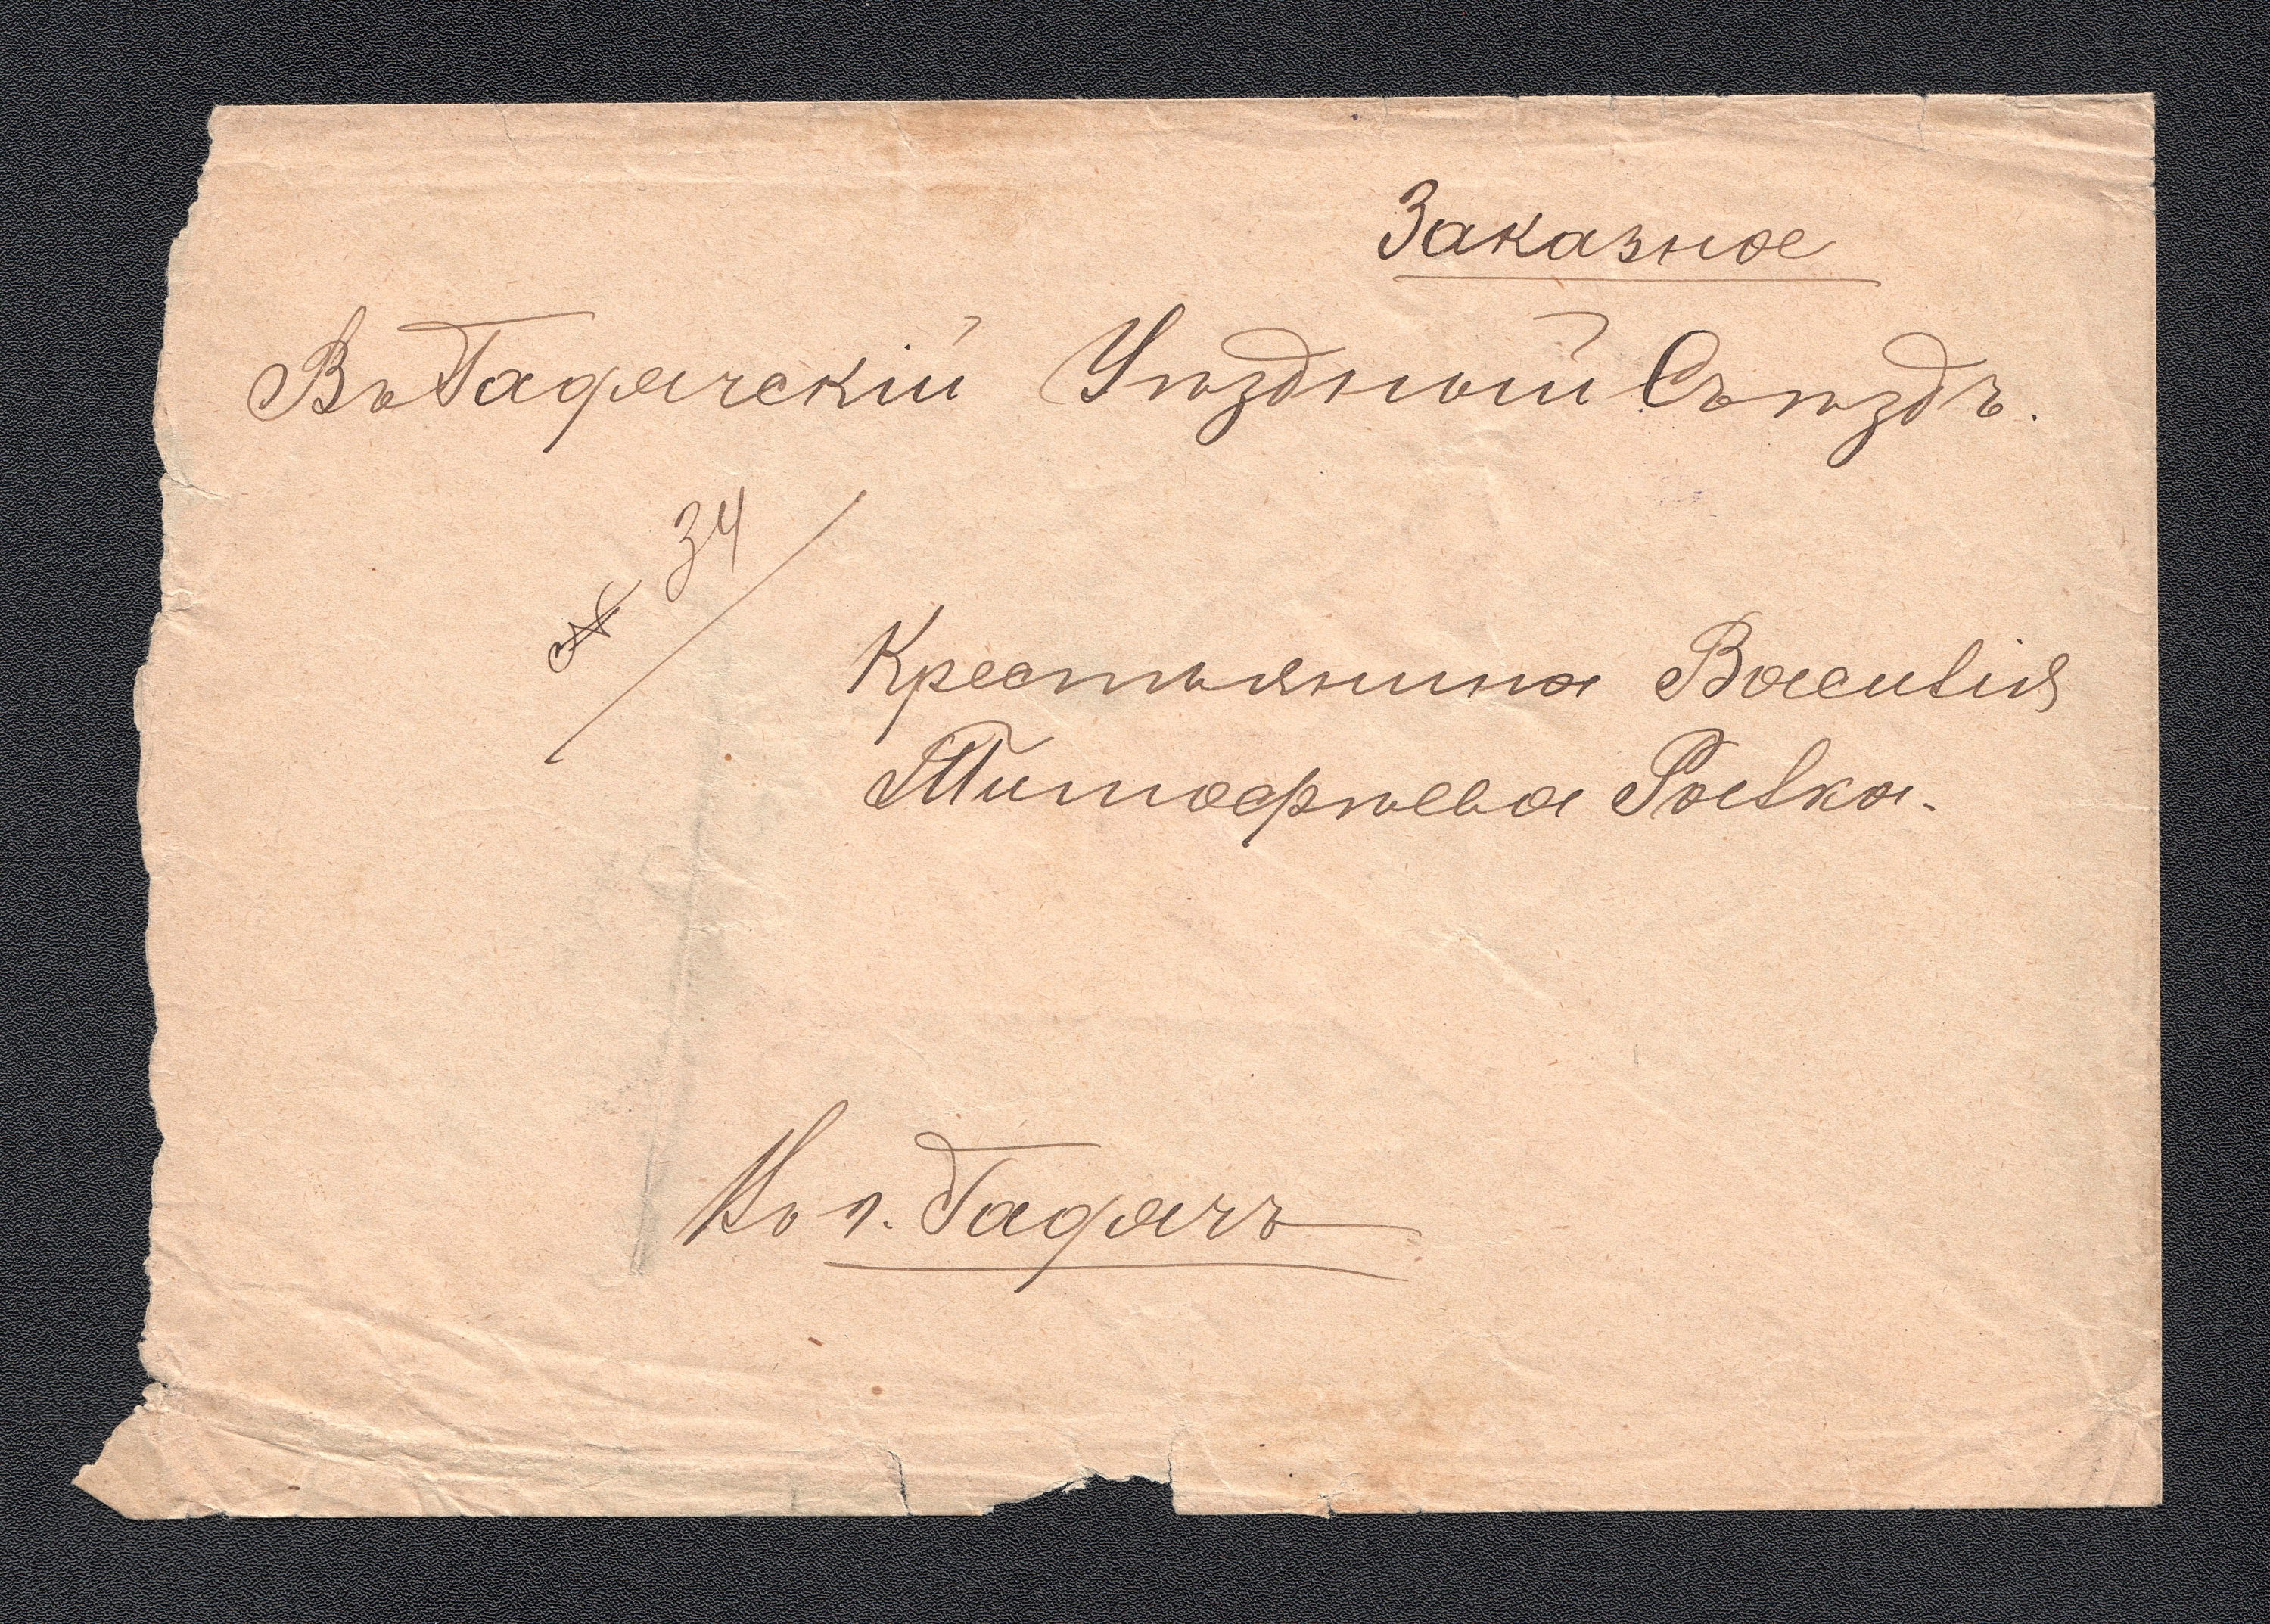 Заказное
Въ Гадячскій Уѣздный Съѣздъ.
№ 34
Крестьянина Василія
Тимофѣева
Въ г. Гадячъ